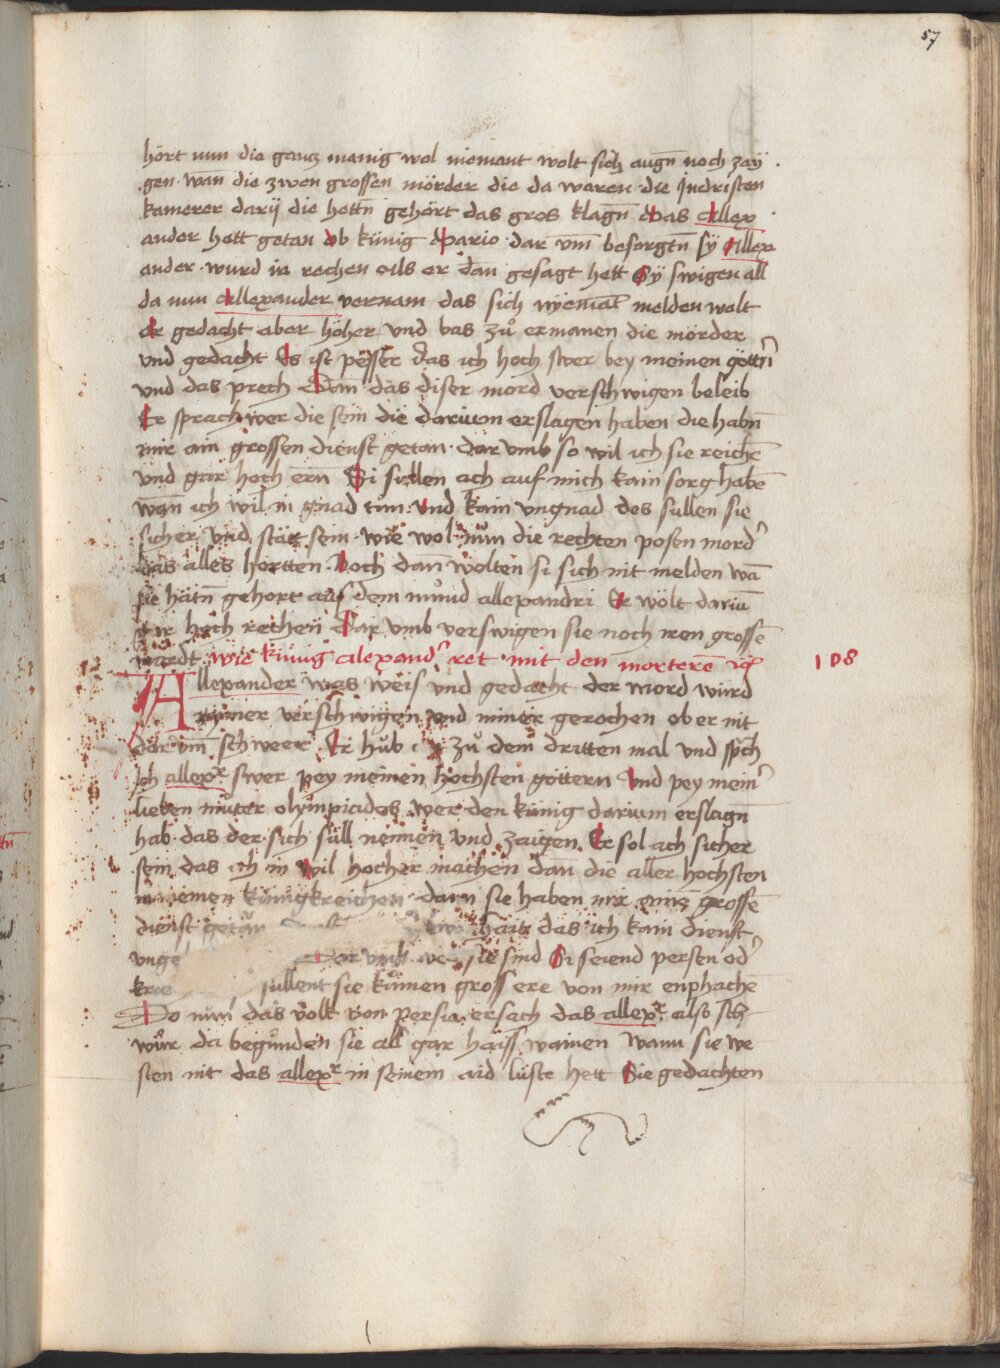 57
hört nun die gancz manig wol niemant wolt sich augn̄ noch zaÿ
gen. wan̄ die zwen grossen mörder die da waren die Jndristen
kamerer darÿ die hettn̄ gehört das gros klagn̄ Das Allex
ander hett getan Vb künig Dario. dar vm̄ besorgtn̄ sÿ Allex
ander. wurd in rechen als er dan gesagt hett Sÿ swigen all
da nun Allexander vernam das sich nÿemāt melden wolt
Er gedacht aber höher vnd bas zů ermanen die mörder
vnd gedacht Es ist pesser das ich hoch swer bey meinen göttr̄
vnd das prech Dan̄ das diser mord verschwigen beleib
Er sprach wer die sein die darium erslagen haben die habn̄
mir ain grossen dienst getan. dar vmb so wil ich sie reichē
vnd gar hoch ern̄ Si sullen ach auf mich kain sorg habē
wan̄ ich wil in gnad tun. Vnd kain vngnad des sullen sie
sicher vnd statt sein. wie wol nun die rechten posen mord'
das alles hortten. Doch dan̄ wolten si sich nit melden wā
sie hätn̄ gehort aus dem můnd allexandri Er wölt dariū
gar hoch rechen Dar vmb verswigen sie noch iren grossē
mardt. wie künig alexand' ret mit den morterē
108
Allexander was weis vnd gedacht der mord wurd
nÿmer verschwigen vnd nimer gerochen ob er nit
dar vm̄ schweer Er hůb zů dem dritten mal vnd sp̄ch
Jch allexr swer pey meinen hochsten göttern Vnd pey mein'
lieben můter olÿmpiades wer den künig darium erslagn̄
hab. das der sich süll nennen vnd zaigen Er sol ach sicher
sein das ich in Wil hocher machen dan̄ die aller hochsten
in meinen künigkreichen. dann sie haben mir grossē
dienst getan das ich kain dienst
vnge Dar vmb sie sind Si seiend persen od'
kree sullent sie kümen grossere von mir enphachē
Do nun das volk von persia ersach das allexr also sch
wůr da begůnden sie all gar haiss wainen Wann sie we
sten nit das allexr in seinem aid liste hett Sie gedachten